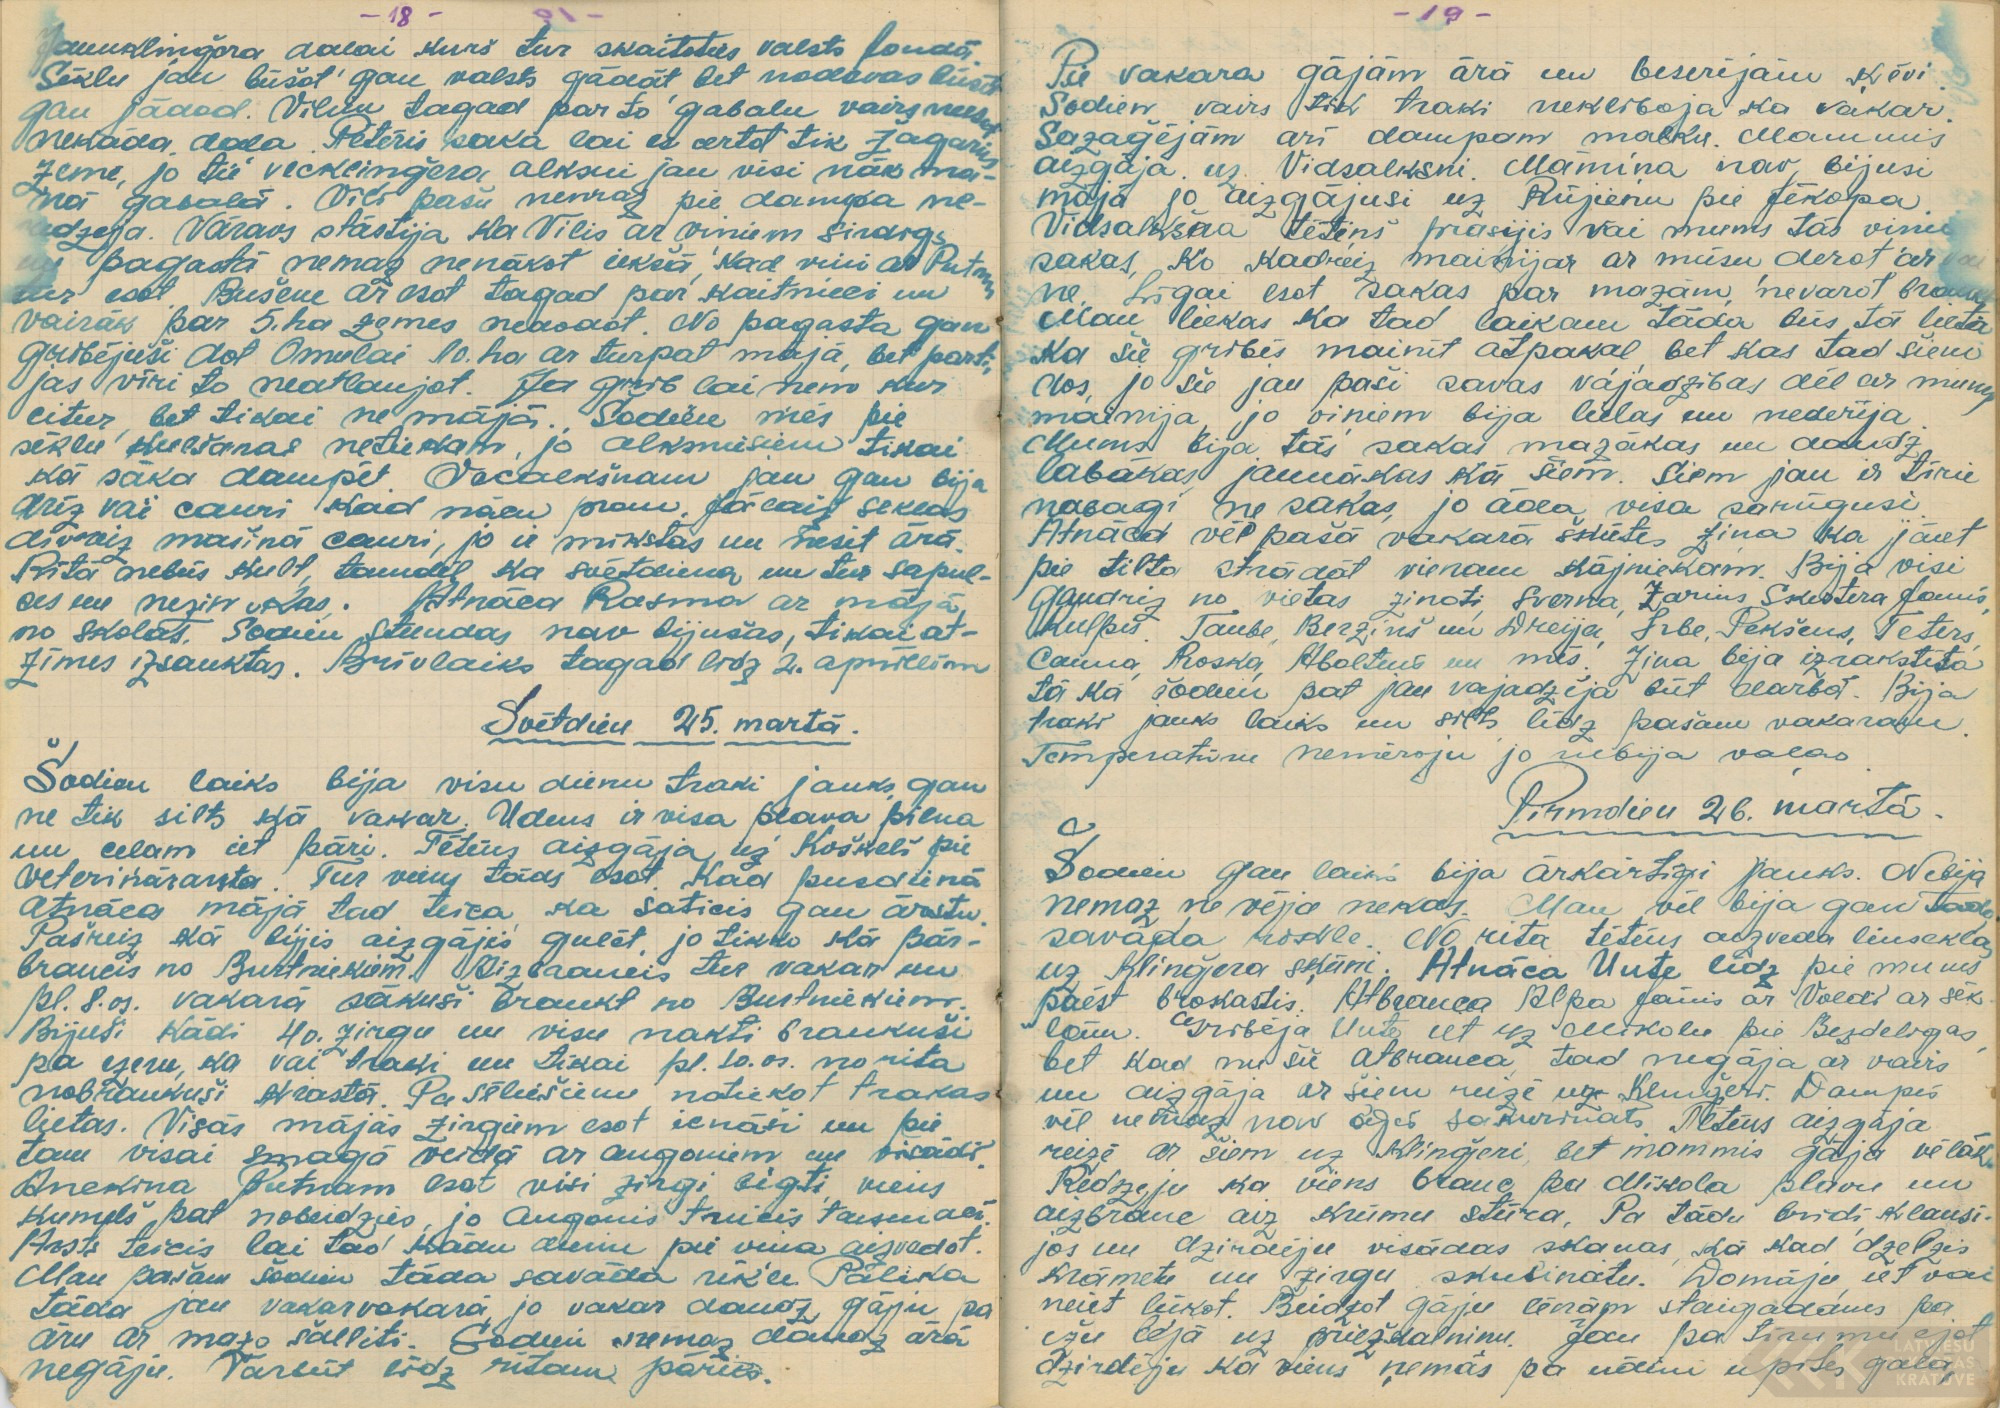 - 18 -
Jaunklingera daļai kurš tur skaitoties valsts fondā.
Sēklu jau būšot gan valsts gādāt, bet nodevas būšot
gan jādod. Vilim tagad par to gabalu vairs neesot
nekāda daļa. Pēteris saka lai es ertot tik Žagariņ
zemē, jo tie vecklingera alksni jau visi nāk ma-
nā gabalā. Vili pašu nemaz pie dampa ne-
redzēja. Vāravs stāstīja ka Vilis ar viņiem sirdīgs
pagastā nemaz nenākot iekšā, kad viņi ar Putnu
tur esot. Bušene ar esot tagad par kaitnieci un
vairāk par 5. ha zemes nedodot. No pagasta gan
gribējuši dot Omulai 10. ha ar turpat mājā, bet parti-
jas vīri to neatļaujot. Ja grib lai ņem kur
citur, bet tikai ne mājā. Šodien mēs pie
sēklu kulšanas netiekam, jo alksnušiem tikai
kā sāka dampēt. Vecalkšņam jau gan bija
drīz vai cauri kad nācu prom. Jālaiž sēklas
divreiz mašīnā cauri, jo ir mīkstas un nesit ārā.
Rītā nebūs kult, tamdēļ ka svētdiena un tur sapul-
ces un nezin kas. Atnāca Rasma ar mājā
no skolas. Šodien stundas nav bijušas, tikai at-
zīmes izsauktas. Brīvlaiks tagad līdz 2. aprīlim
Svētdien 25. martā.
Šodien laiks bija visu dienu traki jauks, gan
ne tik silts kā vakar. Ūdens ir visa pļava pilna
un ceļam iet pāri. Tētiņš aizgāja uz Koškeli pie
veterinārārsta. Tur viens tāds esot. Kad pusdienā
atnāca mājā tad teica, ka saticis gan ārstu.
Pašreiz kā bijis aizgājis gulēt, jo tikko kā pār-
braucis no Burtniekiem. Aizbraucis tur vakar un
pl. 8.os. vakarā sākuši braukt no Burtniekiem.
Bijuši kādi 40. zirgu un visu nakti braukuši
pa ezeru, ka vai traki un tikai pl. 10.os. no rīta
nobraukuši krastā. Pa Sēlešiem notiekot trakas
lietas. Visās mājās zirgiem esot ienāši un pie
tam visai smagā veidā ar augoņiem un visādi.
Anekina Putnam esot visi zirgi beigti, viens
kumeļš pat nobeidzies, jo augonis trūcis taisni acī.
Ārsts teicis lai tad kādu dienu pie viņa aizvedot.
Man pašam šodien tāda savāda rīkle. Palika
tāda jau vakarvakarā, jo vakar daudz gāju pa
āru ar mazo šalliti. Šodien nemaz daudz ārā
negāju. Varbūt līdz rītam pāries.
- 19 -
Pie vakara gājām ārā un beserējām ķēvi.
Šodien vairs tik traki nekliboja ka vakar.
Sazāģējām arī dampam malku. Mammis
aizgāja uz Vidsalksni. Māmiņa nav bijusi
mājā jo aizgājusi uz Rūjienu pie Jēkopa.
Vidsalkšņa tētiņš prasījis vai mums tās viņu
sakas, ko kādreiz mainījām ar mūsu derot ar vai
ne. Šogai esot sakas par mazām, nevarot braukt
Man liekas ka tad laikam tāda būs tā lieta
ka šie gribēs mainīt atpakaļ, bet kas tad šiem
dos, jo šie jau paši savas vajadzības dēļ ar mums
mainīja, jo viņiem bija lielas un nederēja.
Mums bija tās sakas mazākas un daudz
labākas, jaunākas kā šiem. Šiem jau ir tīrie
nabagi ne sakas, jo āda visa sarūgusi.
Atnāca vēl pašā vakarā šķūtes ziņa ka jāiet
pie tilta strādāt vienam kājniekam. Bija visi
gandrīz no vietas ziņoti, Sverna, Zariņš, Skutera Jānis,
Kulpis, Taube, Berziņš un Dreija, Irbe, Pekšēns, Teters,
Cauna, Roska, Aboltiņš un mēs. Ziņa bija izrakstīta
tā kā šodien pat jau vajadzēja būt darbā. Bija
traki jauks laiks un silts līdz pašam vakaram.
Temperatūru nemēroju jo nebija vaļas.
Pirmdien 26. martā.
Šodien gan laiks bija ārkārtīgi jauks. Nebija
nemaz ne vēja nekas. Man vēl bija gan tāda
savāda rīkle. No rīta tētiņš aizveda linsēklas
uz Klingera šķūni. Atnāca Unte līdz pie mums
paēst brokastis. Atbrauca Alpa Jānis ar Voldi ar sēk-
lām. Gribēja Unte iet uz Mikolu pie Bezdelīgas,
bet kad nu šie atbrauca, tad negāja ar vairs
un aizgāja ar šiem reizē uz Klingeri. Dampis
vēl nemaz nav ticis sakurināts. Tētiņš aizgāja
reizē ar šiem uz Klingeri, bet mammis gāja vēlāk.
Redzēju ka viens brauc pa Mikola pļavu un
aizbrauc aiz krūmu stūra. Pa tādu brīdi klausī-
jos un dzirdēju visādas skaņas, kā kad dzelzis
krāmētu un zirgu skubinātu. Domāju iet vai
neiet lūkot. Beidzot gāju lēnām staigādams pa
ežu lejā uz priežkalniņu. Jau pa tīrumu ejot
dzirdēju ka viens ņemās pa ūdeni upītes galā,
LATVIEŠU
FOLKLORAS
KRĀTUVE